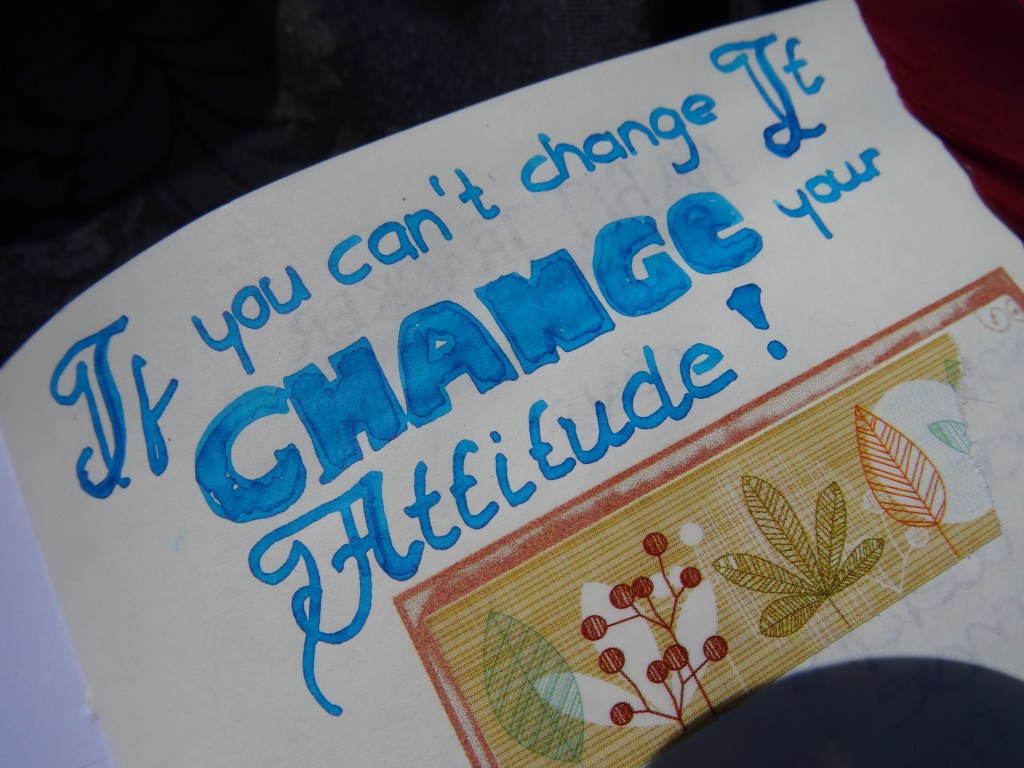 If you can't change It
CHANGe your
Attitude!